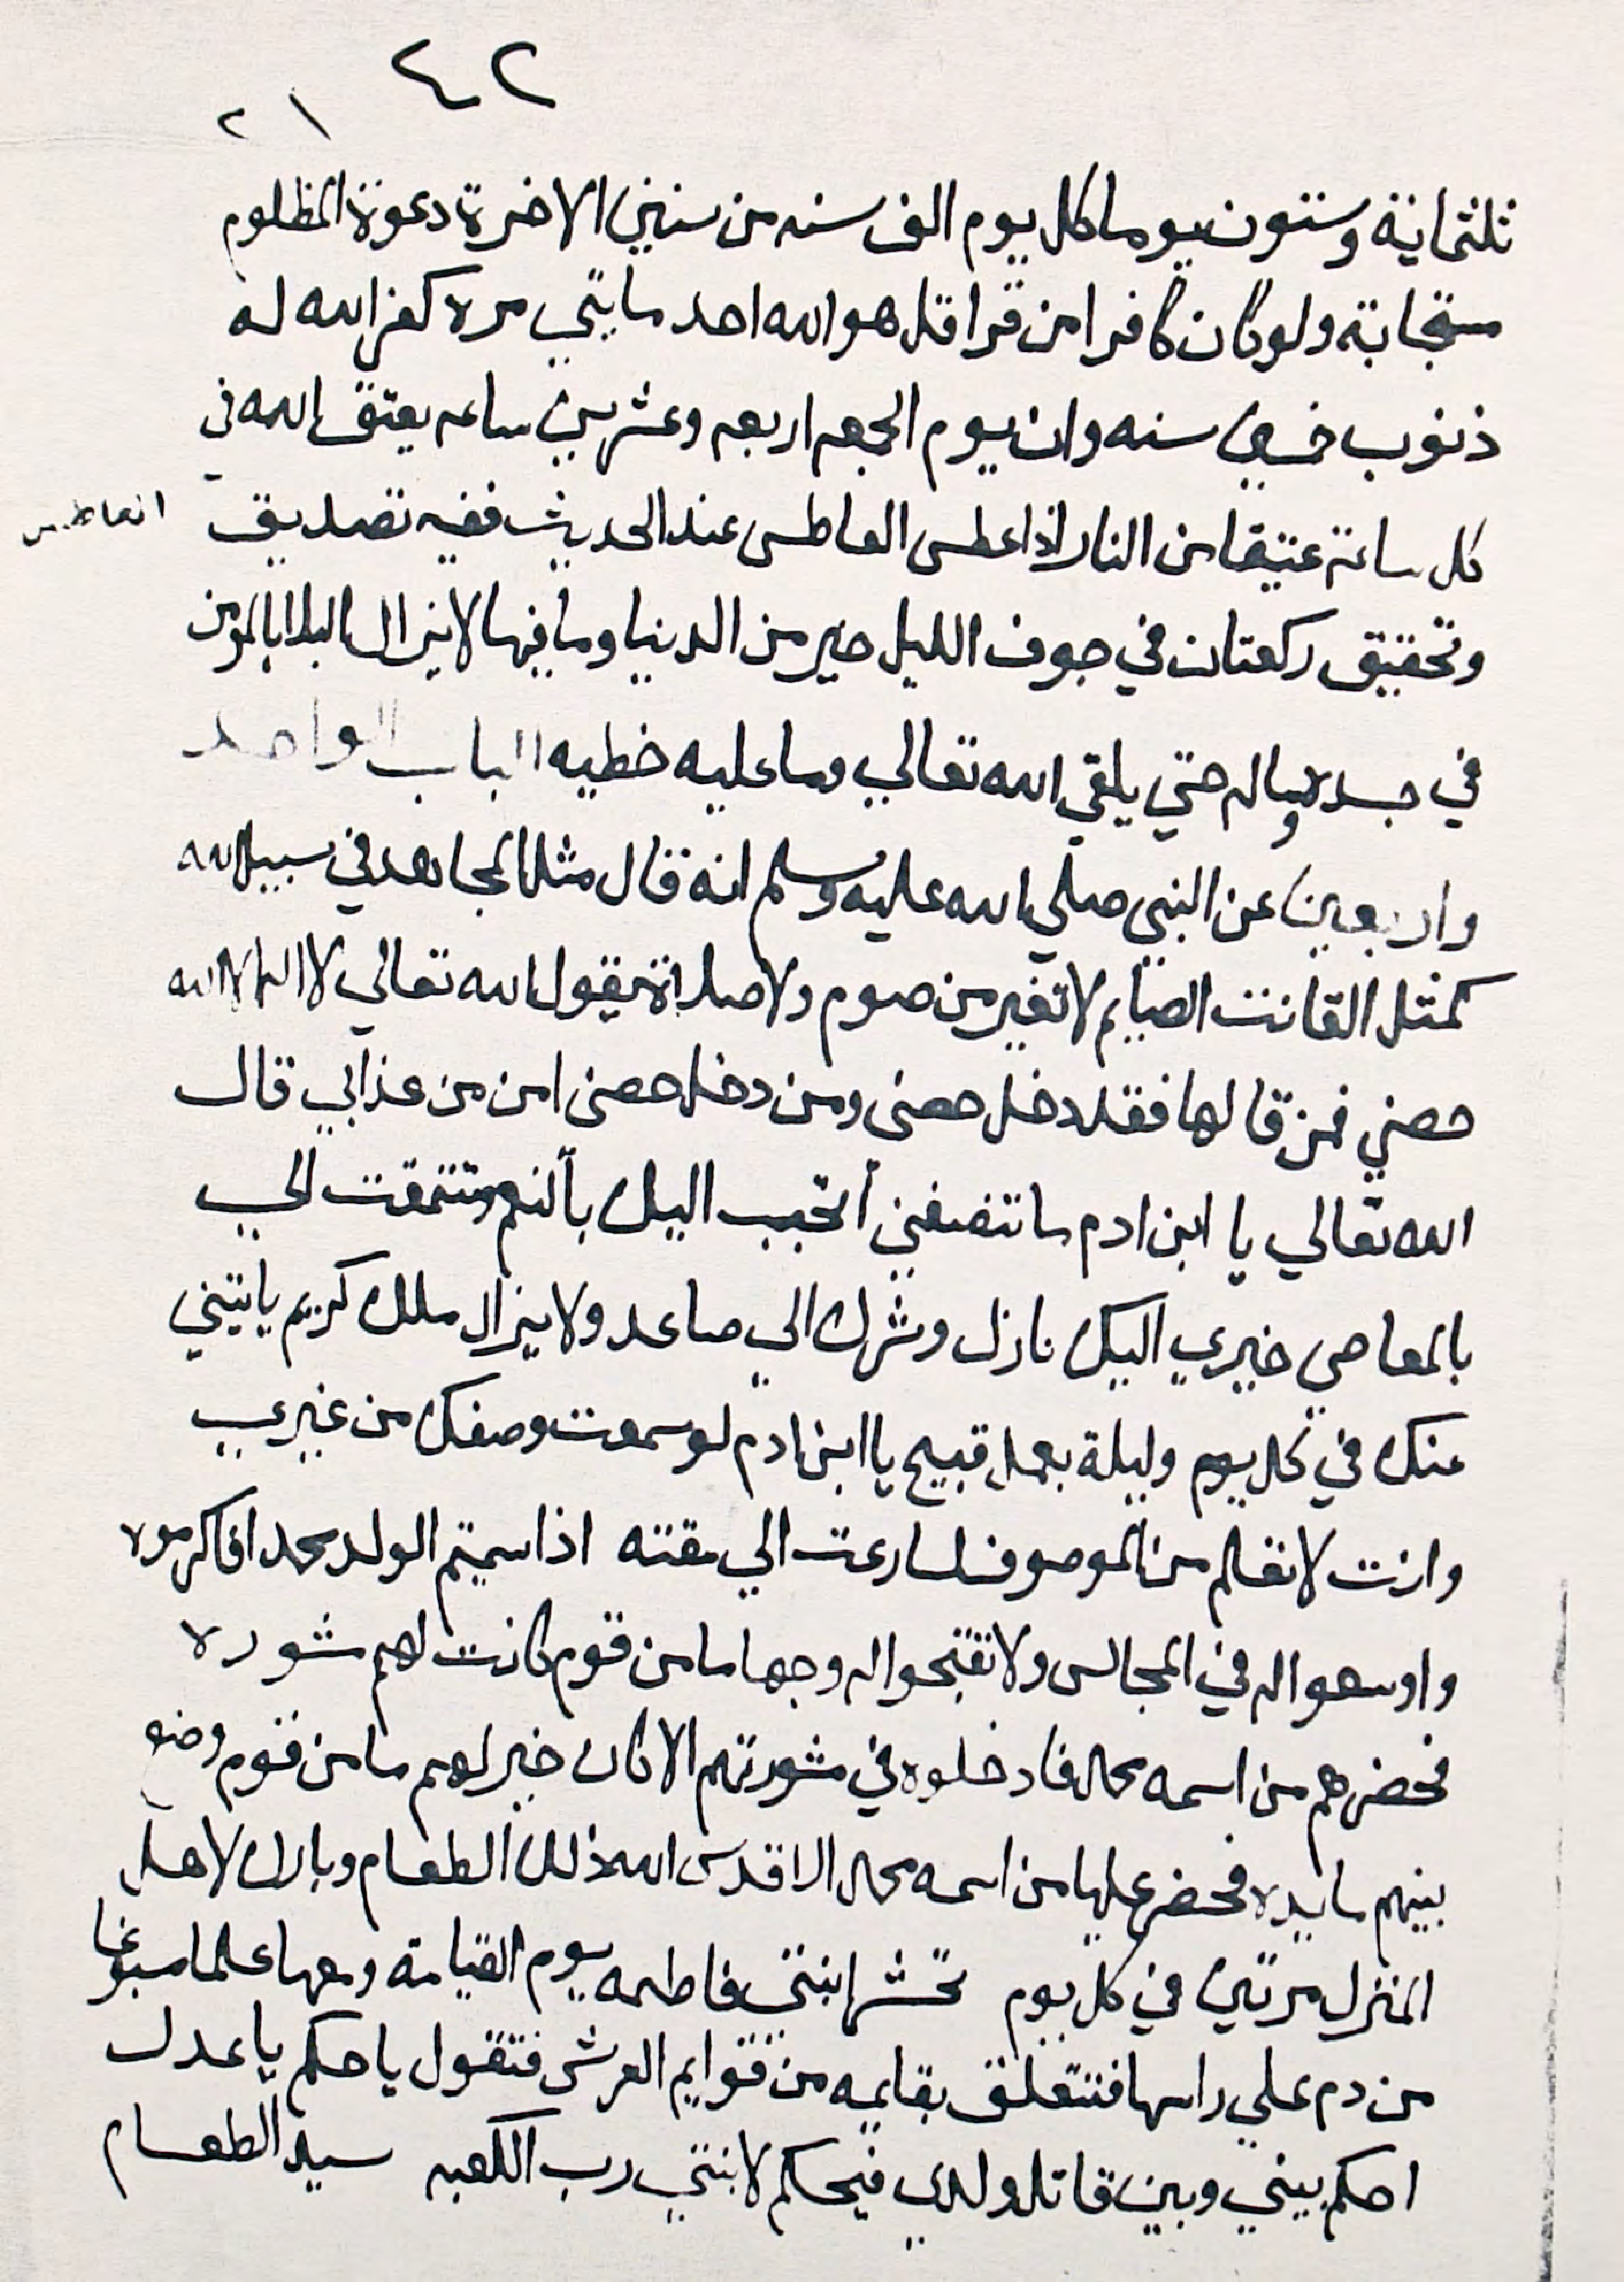 ٤٢
٢١
ثلثماية وستون يوما كل يوم الف سنه من سنين الاخرة دعوة المظلوم
مستجابة ولو كان كافرا من قرا قل هو الله احد مايتي مره كفر الله له
ذنوب خمسين سنه وان يوم الجمعه اربعه وعشرين ساعه يعتق الله في
كل ساعة عتيقا من النار اذا عطس العاطس عند الحديث ففيه تصديق
العاطس
وتحقيق ركعتان في جوف الليل خير من الدنيا وما فيها لا يزال البلا بالمومن
في جسده وماله حتي يلقي الله تعالي وما عليه خطيه الباب الواحد
واربعين عن النبي صلي الله عليه وسلم انه قال مثل المجاهد في سبيل الله
كمثل القانت الصايم لا تغير من صوم ولا صلاة يقول الله تعالي لا اله الا الله
حصني فمن قالها فقد دخل حصني ومن دخل حصني امن من عذابي قال
الله تعالي يا ابن ادم ما تنصفني أتحبب اليك بالنعم وتتمقت الي
بالمعاصي خيري اليك نازل وشرك الي صاعد ولا يزال ملك كريم ياتيني
عنك في كل يوم وليلة بعمل قبيح يا ابن ادم لو سمعت وصفك من غيرب
وانت لا تعلم من الموصوف لسارعت الي مقته اذا سميتم الولد محمد افاكرموه
واوسعوا له في المجالس ولا تقبحوا له وجها ما من قوم كانت لهم مشوره
فحضرهم من اسمه محمد فادخلوه في مشورتهم الا كان خير لهم ما من قوم وضع
بينهم مايده فحضر عليها من اسمه محمد الا قدس الله ذلك الطعام وبارك لاهل
المنزل مرتين في كل يوم تحشر ابنتي فاطمه يوم القيامة ومعها علما مصبوغا
من دم علي راسها فتتعلق بقايمه من قوايم العرش فتقول يا حكم يا عدل
احكم بيني وبين قاتل ولدي فيحكم لابنتي رب الكعبه سيد الطعام